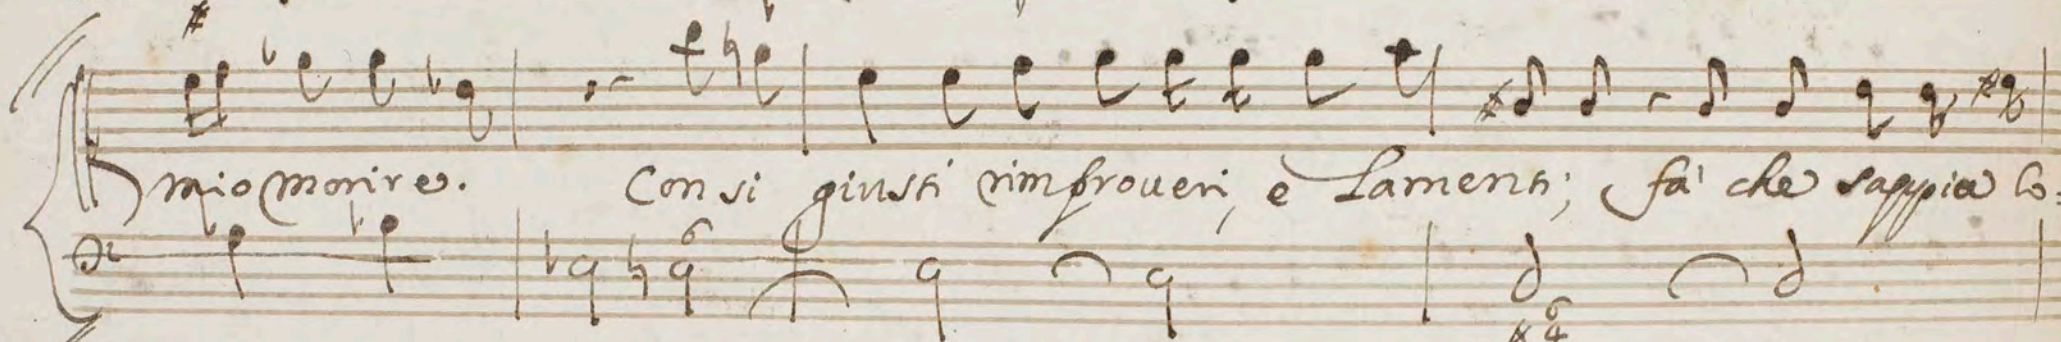 mio morire. Con si giusti rimproveri, e Lamenti; fa' che sappia lo: